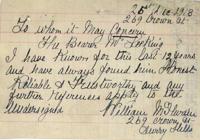 25th Dec 1913
269 Crown St
To whom it May Concern
The Bearer Mr
I have Known for this last 12 years
and have always found him Honest
Reliable & Trustworthy and any
further references apply to the
Undersigned
William
269 Crown St
Surry Hills